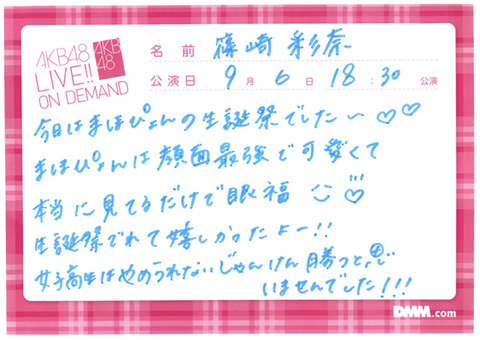 AKB48
LIVE!!
ON DEMAND
AKB
48
名前 篠崎 彩奈
公演日 9月6日 18:30 公演
今日はまほぴょんの生誕祭でした〜♡♡
まほぴょんは顔面最強で可愛くて
本当に見てるだけで眼福
生誕祭でれて嬉しかったよー!!
女子高生はやめられないじゃんけん勝つと
いませんでした!!!
DMM.com